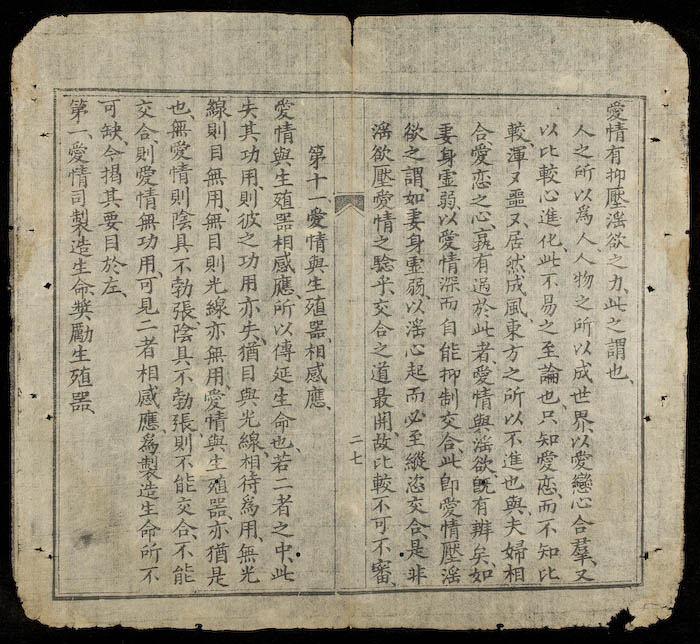 愛情有抑壓淫欲之力、此之謂也、
人之所以爲人、人物之所以成世界、以愛戀心合羣、又
以比較心進化、此不易之至論也、只知愛恋、而不知比
較、渾又噩又、居然成風、東方之所以不進也與、夫婦相
合、愛恋之心、孰有過於此者、愛情與淫欲、旣有辨矣、如
妻身虛弱、以愛情深、而自能抑制交合、此卽愛情壓淫
欲之謂、如妻身虛弱、以淫心起、而必至縱恣交合、是非
淫欲壓愛情之驗乎、交合之道最開、故比較不可不審、
二七
第十一、愛情與生殖器、相感應、
愛情與生殖器相感應、所以傳延生命也、若二者之中、此
失其功用、則彼之功用亦失、猶目與光線、相待爲用、無光
線則目無用、無目則光線亦無用、愛情與生殖器、亦猶是
也、無愛情則陰具不勃張、陰具不勃張、則不能交合、不能
交合、則愛情無功用、可見二者相感應、爲製造生命所不
可缺、今揭其要目於左、
第一、愛情司製造生命、奬勵生殖器、